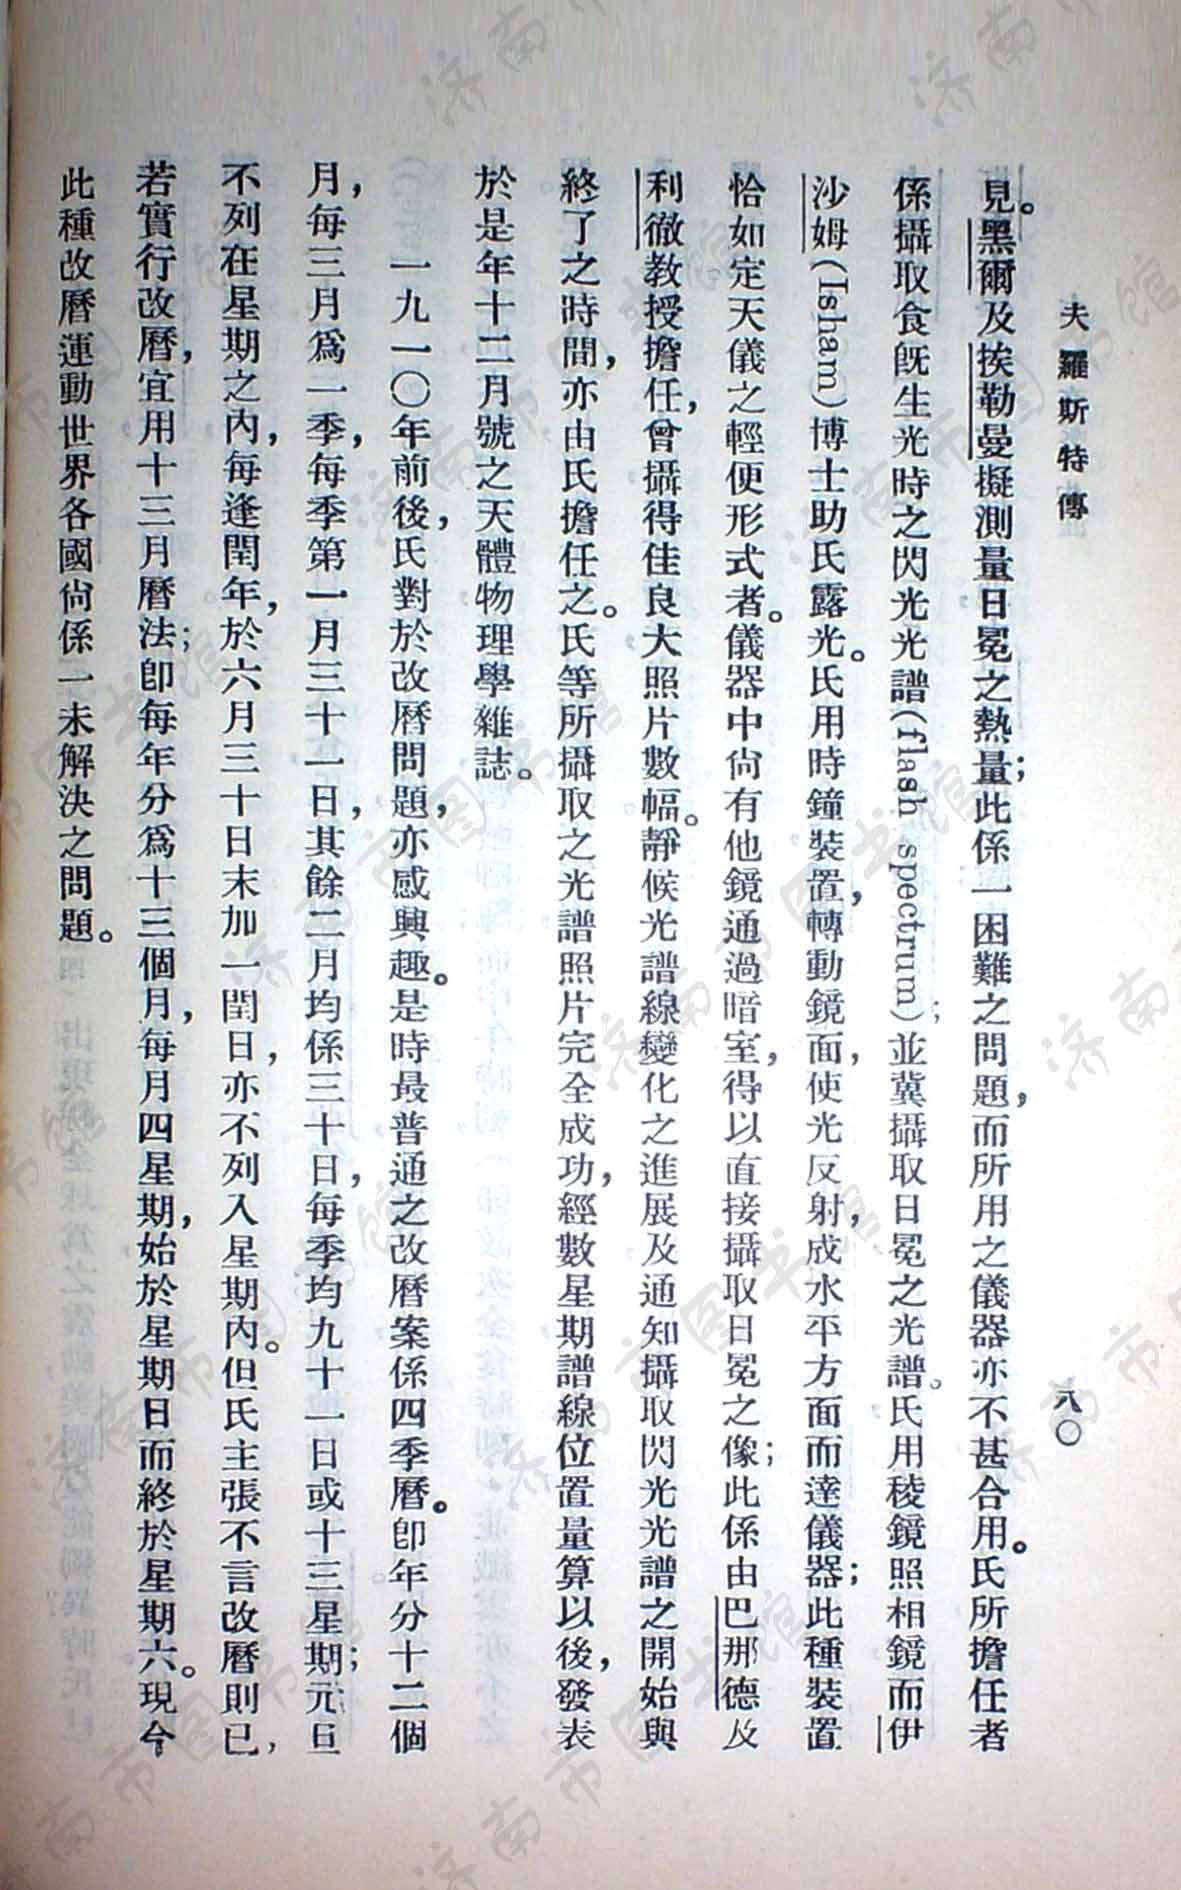 夫羅斯特傳
八〇
見。黑爾及挨勒曼擬測量日冕之熱量；此係一困難之問題，而所用之儀器亦不甚合用。氏所擔任者
係攝取食旣生光時之閃光光譜(flash spectrum)；並冀攝取日冕之光譜。氏用稜鏡照相鏡而伊
沙姆(Isham)博士助氏露光。氏用時鐘裝置，轉動鏡面，使光反射，成水平方面而達儀器；此種裝置
恰如定天儀之輕便形式者。儀器中尙有他鏡通過暗室，得以直接攝取日冕之像；此係由巴那德及
利徹教授擔任，曾攝得佳良大照片數幅。靜候光譜線變化之進展及通知攝取閃光光譜之開始與
終了之時間，亦由氏擔任之。氏等所攝取之光譜照片完全成功，經數星期譜線位置量算以後，發表
於是年十二月號之天體物理學雜誌。
一九一〇年前後，氏對於改曆問題，亦感興趣。是時最普通之改曆案係四季曆。卽年分十二個
月，每三月爲一季，每季第一月三十一日，其餘二月均係三十日，每季均九十一日或十三星期；元旦
不列在星期之內，每逢閏年，於六月三十日末加一閏日，亦不列入星期內。但氏主張不言改曆則已，
若實行改曆，宜用十三月曆法；卽每年分爲十三個月，每月四星期，始於星期日而終於星期六。現今
此種改曆運動世界各國尙係一未解決之問題。
济南市图书馆